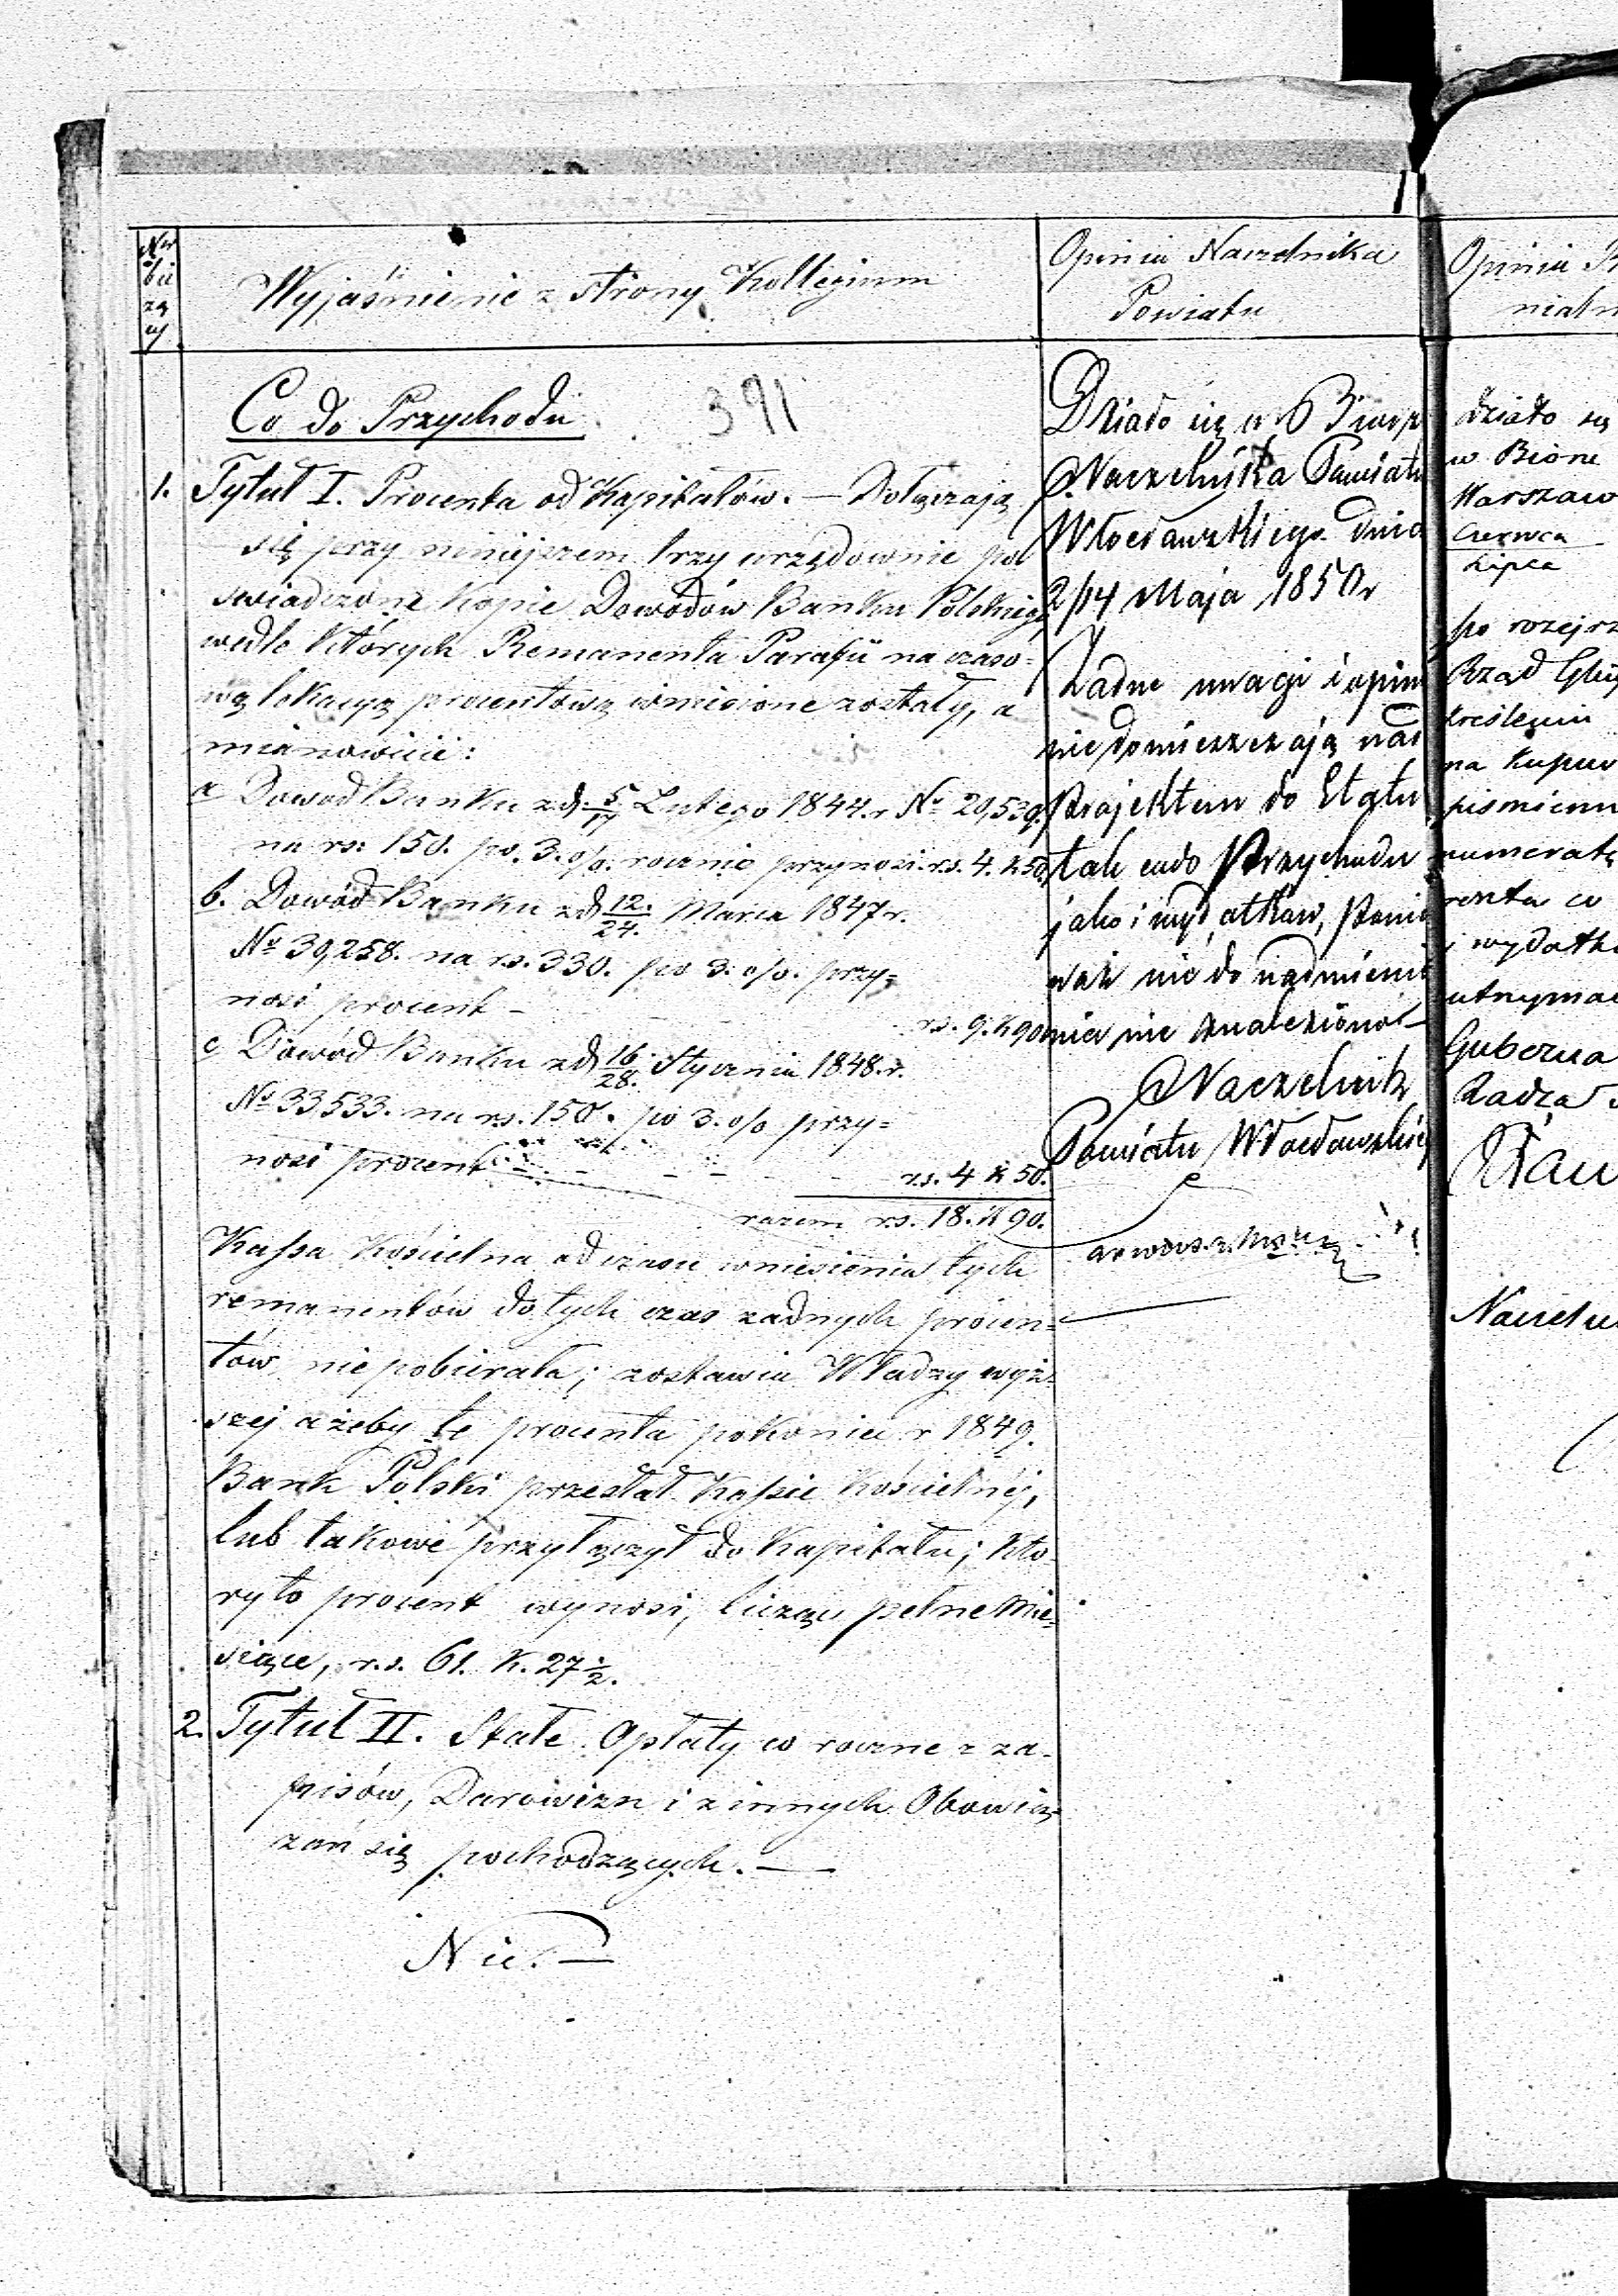 Nr
bie
żą
cy
Wyjaśnienie z strony Kollegium
Co do Przychodu.
391
1. Tytuł I. Procenta od Kapitałów. — Dołączają
się przy niniejszem trzy urzędownie po
swiadczone Kopie Dowodów Banku Polskiego
wedle których Remanenta Parafii na czaso=
wą lokacyą procentową wniesione zostały, a
mianowicie:
a Dowod Banku z d. 5/17 Lutego 1844. r № 20,539.
na rs. 150. po. 3. o/o. rocznie przynosi. r.s. 4. k 50.
b. Dowód Banku z d 12./24. Marca 1847 r.
№ 30,258. na r.s. 330. po 3. o/o. przy=
nosi procent — r.s. 9. k 90
c Dowód Banku z d 16./28. Stycznia 1848. r.
№ 33,533. na r.s. 150. po 3. o/o przy=
nosi procent — r.s. 4 k 50.
razem r.s. 18. k 90.
Kassa Kościelna od czasu wniesienia tych
remanentów do tych czas zadnych procen=
tów, nie pobierała; zostawia Władzy wyż=
szej ażeby te procenta pokoniec r 1849.
Bank Polski przesłał Kassie Kościelnéj,
lub takowe przyłączył do Kapitału; Któ
ry to procent wynosi, licząc pełne Mie=
siące, r.s. 61. k. 27 1/2.
2. Tytuł II. Stałe Opłaty co roczne z za-
pisów, Darowizn i z innych Obowią=
zań się pochodzących. —
Nic. —
Opinia Naczelnika
Powiatu
Działo się w Biurze
Naczelnika Powiatu
Włocławskiego dnia
2/14 Maja 1850 r
Żadne uwagi i opini
nie domieszczają nad
Projektem do Etatu
tak co do Przychodu
jako i wydatków, Ponie
waż nic do nadmienie
nia nie znaleziono —
Naczelnik
Powiatu Włocławskieg
Opinia
nialn
działo się
w Biórze
Warszaw
Czerwca
Lipca
po rozejrz
Rząd Gub
kreśleniu
na kupno
pismienn
numeratę
reszta co
i wydatk
utrzyma
Guberna
Radca
Naczelni